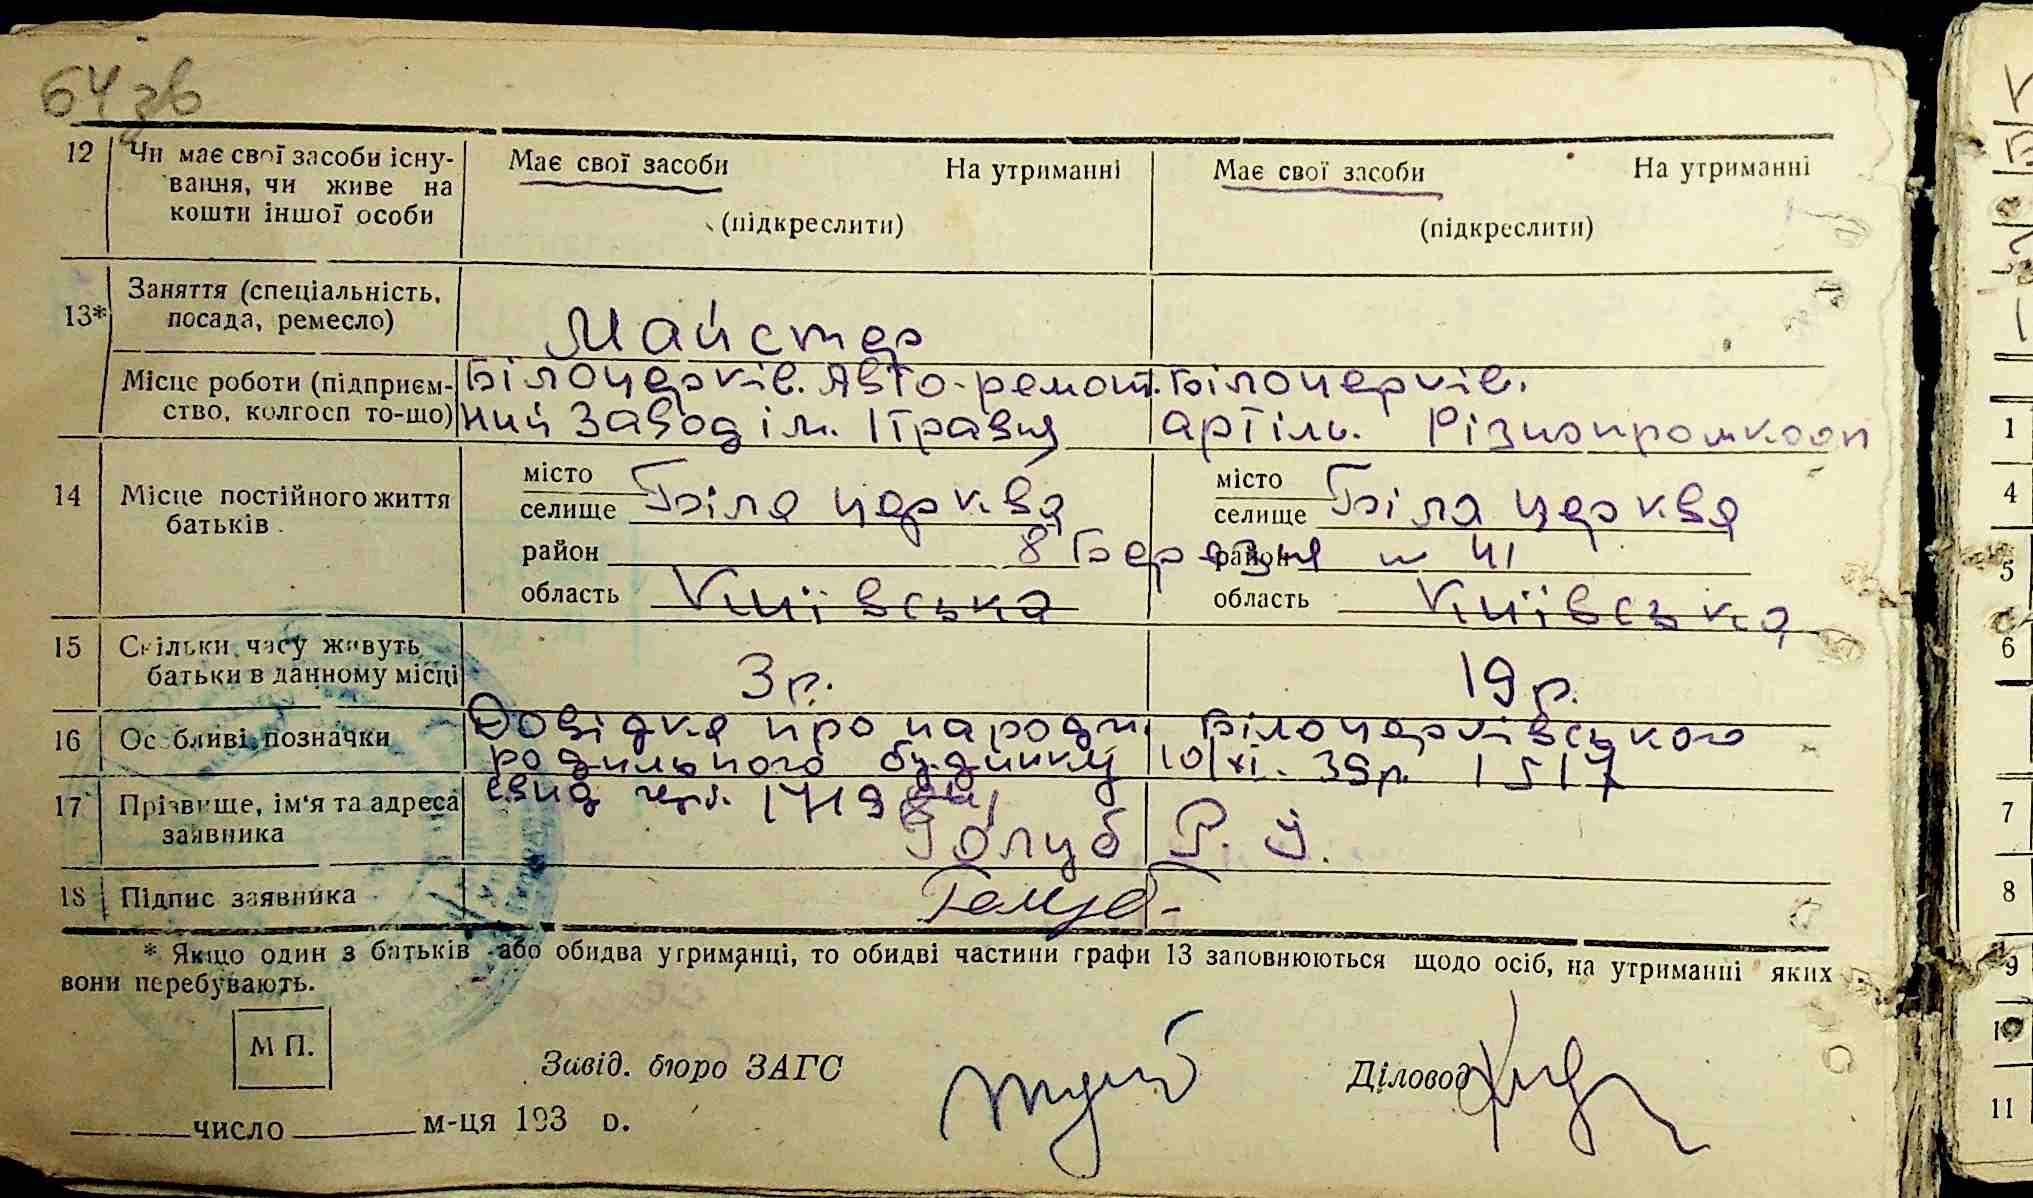 64зв
12 Чи має свої засоби існу- Має свої засоби На утриманні Має свої засоби На утриманні
вання, чи живе на
кошти іншої особи (підкреслити) (підкреслити)
Заняття (спеціальність,
13* посада, ремесло) Майстер
Місце роботи (підприєм- Білоцерків. Авто-ремонт. Білоцерків.
ство, колгосп то-що) ний завод ім. 1 Травня артіль. Різнопромкооп
14 Місце постійного життя місто Біла церква місто Біла церква
батьків селище селище
район 8 Березня № 41 район
область Київська область Київська
15 Скільки часу живуть
батьки в данному місці 3 р. 19 р.
16 Особливі позначки Довідка про народж. Білоцерківського
родильного будинку 10/XI. 39р. 1517
17 Прізвище, ім'я та адреса свид 171198
заявника Голуб Р. Й.
18 Підпис заявника Голуб
* Якщо один з батьків або обидва утриманці, то обидві частини графи 13 заповнюються щодо осіб, на утриманні яких
вони перебувають.
М П.
Завід. бюро ЗАГС Діловод
число м-ця 193 р.
1
4
5
6
7
8
9
10
11